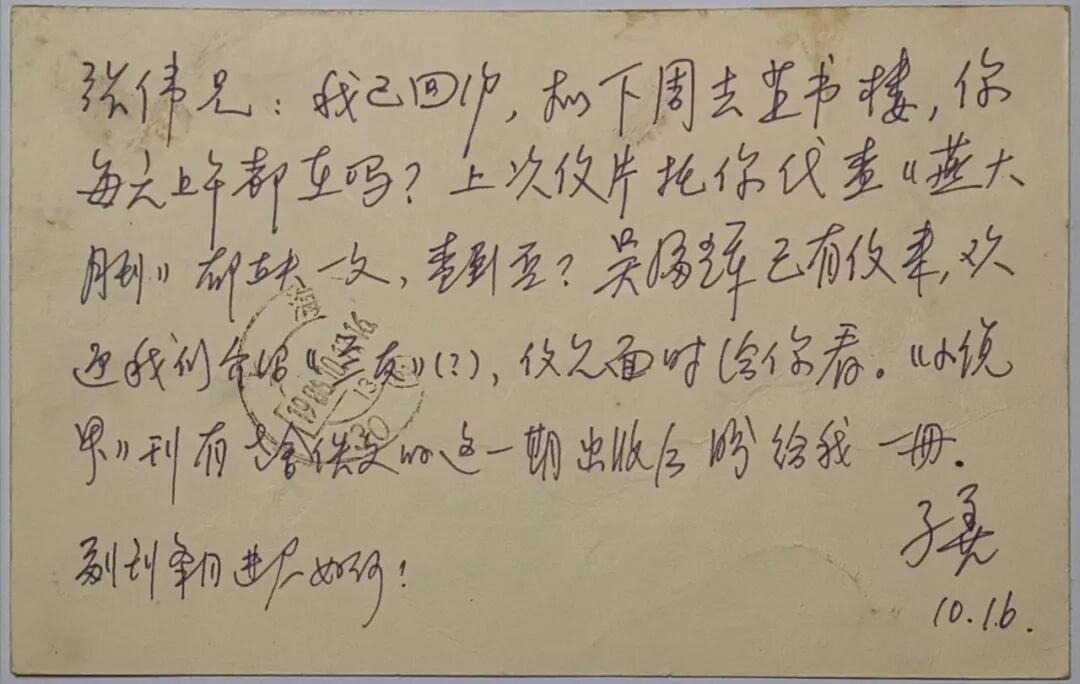 张伟兄：我已回沪，拟下周去藏书楼，你
每天上午都在吗？上次信片托你代查《燕大
月刊》 一文，查到否？吴 已有信来，欢
迎我们合写《 》(？)，信见面时给你看。《小说
界》刊有老舍佚文的这一期出版后盼给我一册。
子善
10.16.
副刊条目进展如何？
1986.10.